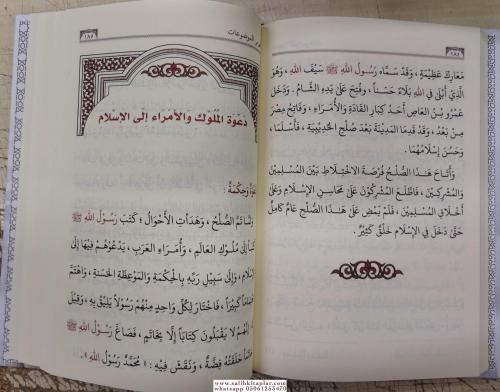 ١٨٤
مَعَارِكَ عَظِيمَةٍ ، وَقَدْ سَمَّاهُ رَسُولُ اللهِ ﷺ سَيْفَ اللهِ ، وَهُوَ
الَّذِي أَبْلَى فِي اللهِ بَلَاءً حَسَناً ، وَفُتِحَ عَلَى يَدِهِ الشَّامُ . وَدَخَلَ
عَمْرُو بْنُ العَاصِ أَحَدُ كِبَارِ القَادَةِ وَالأُمَرَاءِ ، وَفَاتِحُ مِصْرَ
مِنْ بَعْدُ ، وَقَدْ قَدِمَا المَدِينَةَ بَعْدَ صُلْحِ الحُدَيْبِيَةِ ، فَأَسْلَمَا ،
وَحَسُنَ إِسْلَامُهُمَا .
وَأَتَاحَ هَذَا الصُّلْحُ فُرْصَةَ الاخْتِلَاطِ بَيْنَ المُسْلِمِينَ
وَالمُشْرِكِينَ ، فَاطَّلَعَ المُشْرِكُونَ عَلَى مَحَاسِنِ الإِسْلَامِ وَعَلَى
أَخْلَاقِ المُسْلِمِينَ ، فَلَمْ يَمْضِ عَلَى هَذَا الصُّلْحِ عَامٌ كَامِلٌ
حَتَّى دَخَلَ فِي الإِسْلَامِ خَلْقٌ كَثِيرٌ .
الموضوعات
١٨٥
دَعْوَةُ المُلُوكِ وَالأُمَرَاءِ إِلَى الإِسْلَامِ
وَحِكْمَةٌ :
تَمَّ الصُّلْحُ ، وَهَدَأَتِ الأَحْوَالُ ، كَتَبَ رَسُولُ اللهِ ﷺ
إِلَى مُلُوكِ العَالَمِ ، وَأُمَرَاءِ العَرَبِ ، يَدْعُوهُمْ فِيهَا إِلَى
وَإِلَى سَبِيلِ رَبِّهِ بِالحِكْمَةِ وَالمَوْعِظَةِ الحَسَنَةِ ، وَاهْتَمَّ
كَبِيراً ، فَاخْتَارَ لِكُلِّ وَاحِدٍ مِنْهُمْ رَسُولاً يَلِيقُ بِهِ ، وَقِيلَ
لَا يَقْبَلُونَ كِتَاباً إِلَّا بِخَاتَمٍ ، فَصَاغَ رَسُولُ اللهِ ﷺ
حَلْقَتُهُ فِضَّةٌ ، وَنَقَشَ فِيهِ : « مُحَمَّدٌ رَسُولُ اللهِ » .
www.salihkitaplar.com
whatsapp 05061255470